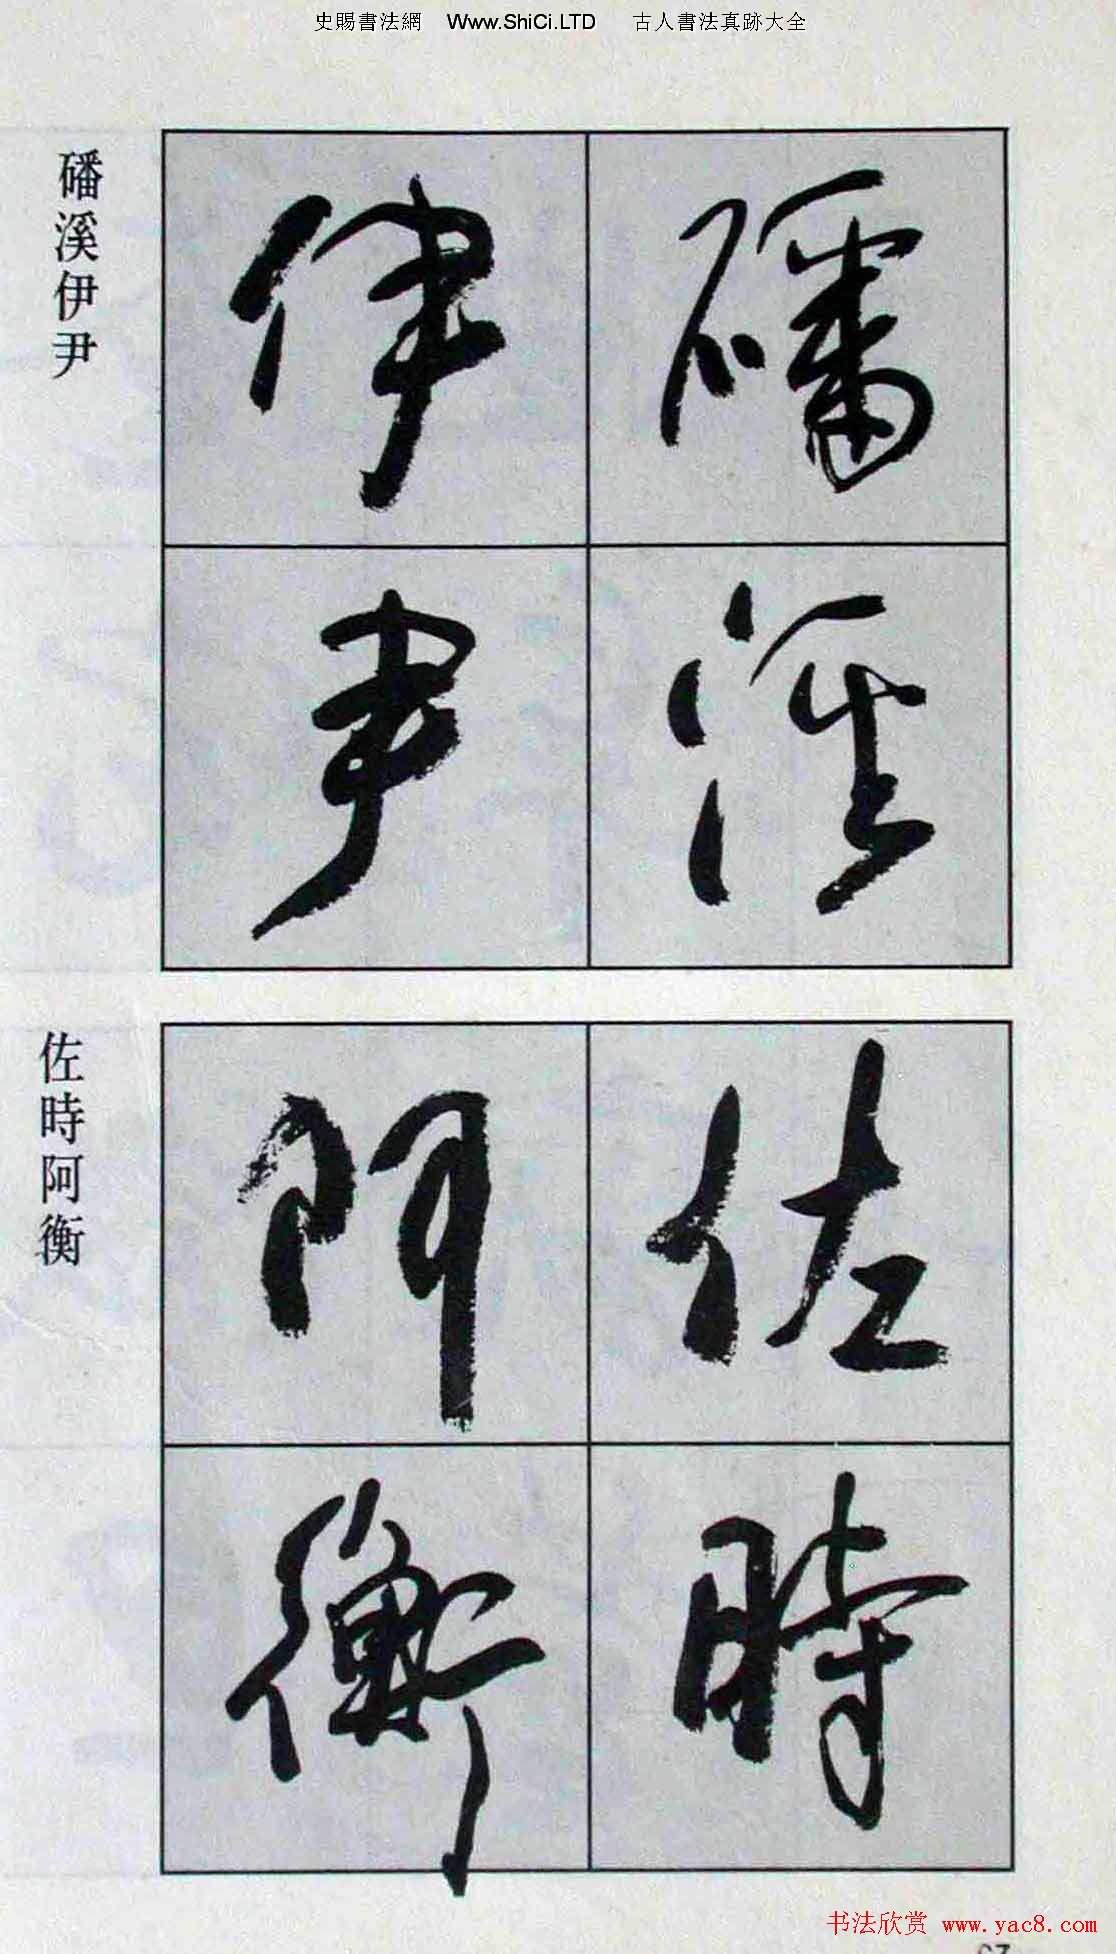 史賜書法網 Www.ShiCi.LTD 古人書法真跡大全
磻溪
伊尹
磻溪伊尹
佐時
阿衡
佐時阿衡
书法欣赏 www.yac8.com